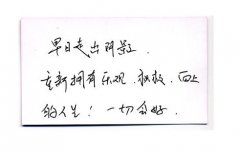 早日走出阴影，
重新拥有乐观、积极、向上
的人生！一切安好。